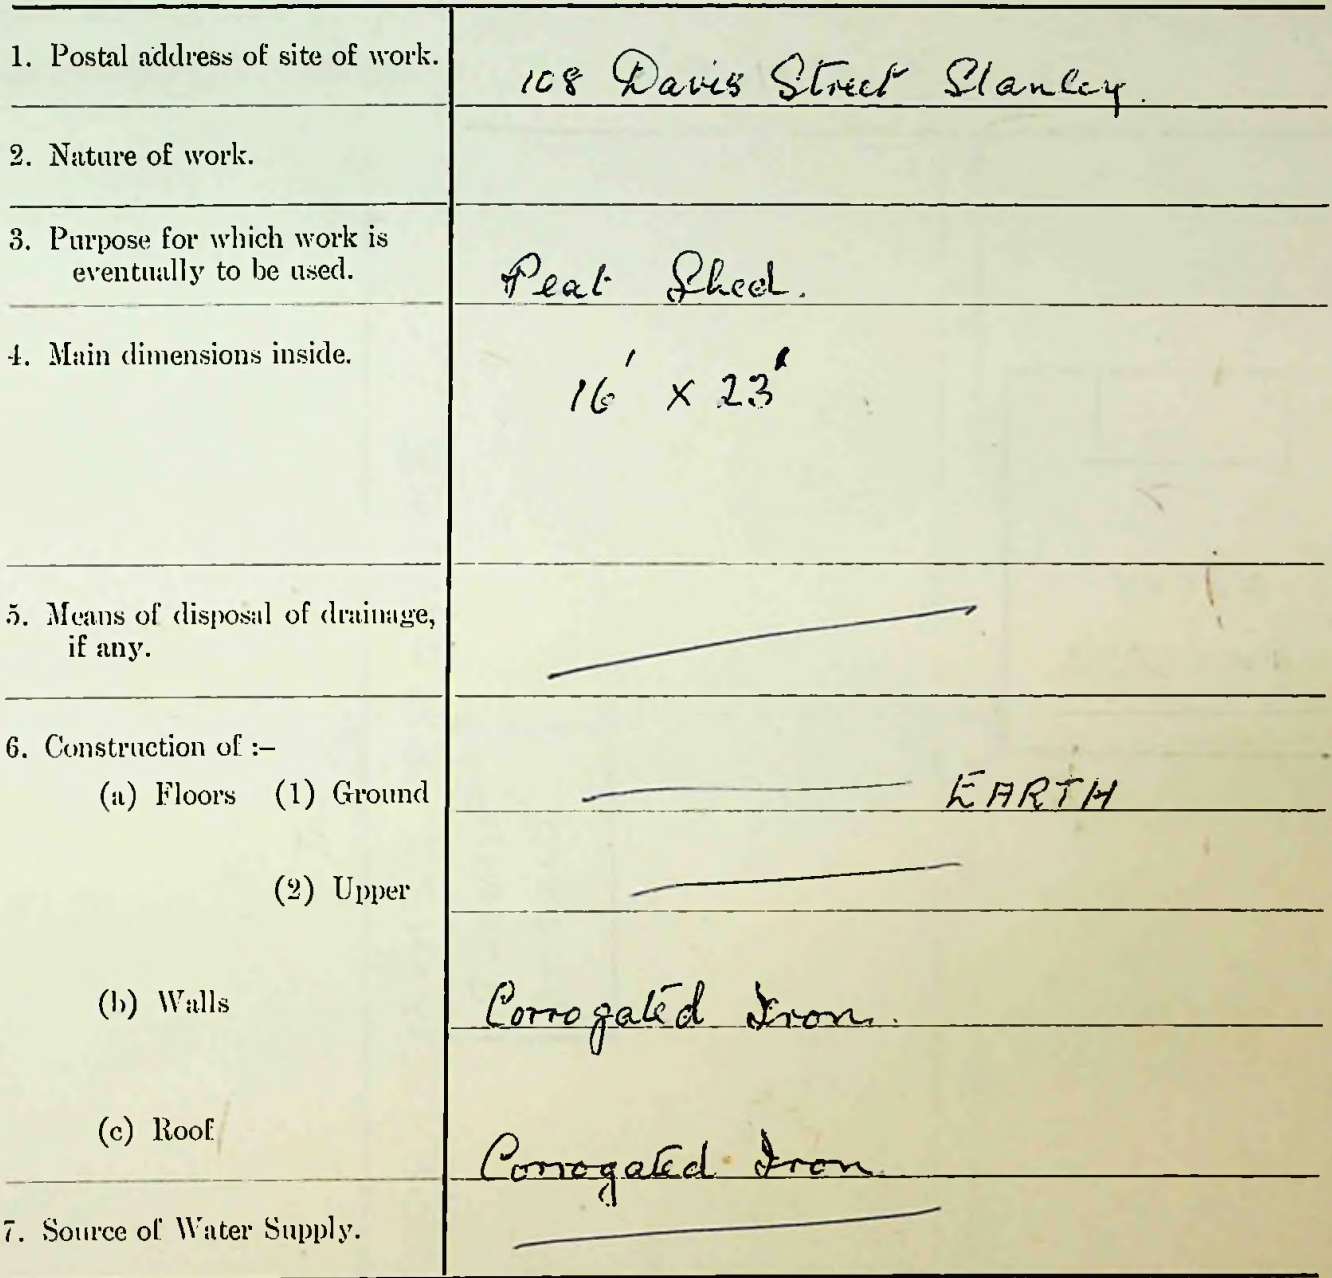 1. Postal address of site of work.
108 Davis Street Stanley.
2. Nature of work.
3. Purpose for which work is
eventually to be used.
Peat Shed.
4. Main dimensions inside.
16' x 23'
5. Means of disposal of drainage,
if any.
6. Construction of :–
(a) Floors (1) Ground
EARTH
(2) Upper
(b) Walls
Corrogated Iron.
(c) Roof
Corrogated Iron
7. Source of Water Supply.